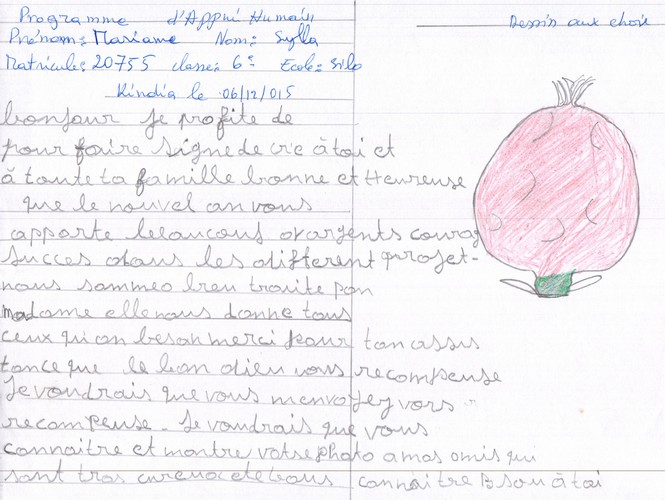 Programme d'Appui Humain
Dessin aux choix
Prénom: Mariame Nom: Sylla
Matricule: 20755 classe: 6e Ecole: Silo
Kindia le 06/12/015
bonjour je profite de
pour faire signe de vie à toi et
à toute ta famille bonne et Heureuse
que le nouvel an vous
apporte beaucoup d'argents courag
Succes dans les different projet-
nous sommes bien traite par
madame elle nous donne tous
ceux qu'on besoin merci pour ton assis
tance que le bon dieu vous recompense
Je voudrais que vous m'envoyez vors
recompense - Je voudrais que vous
connaitre et montre votre photo a mas amis qui
sont tras de vous connaitre Bisou à toi